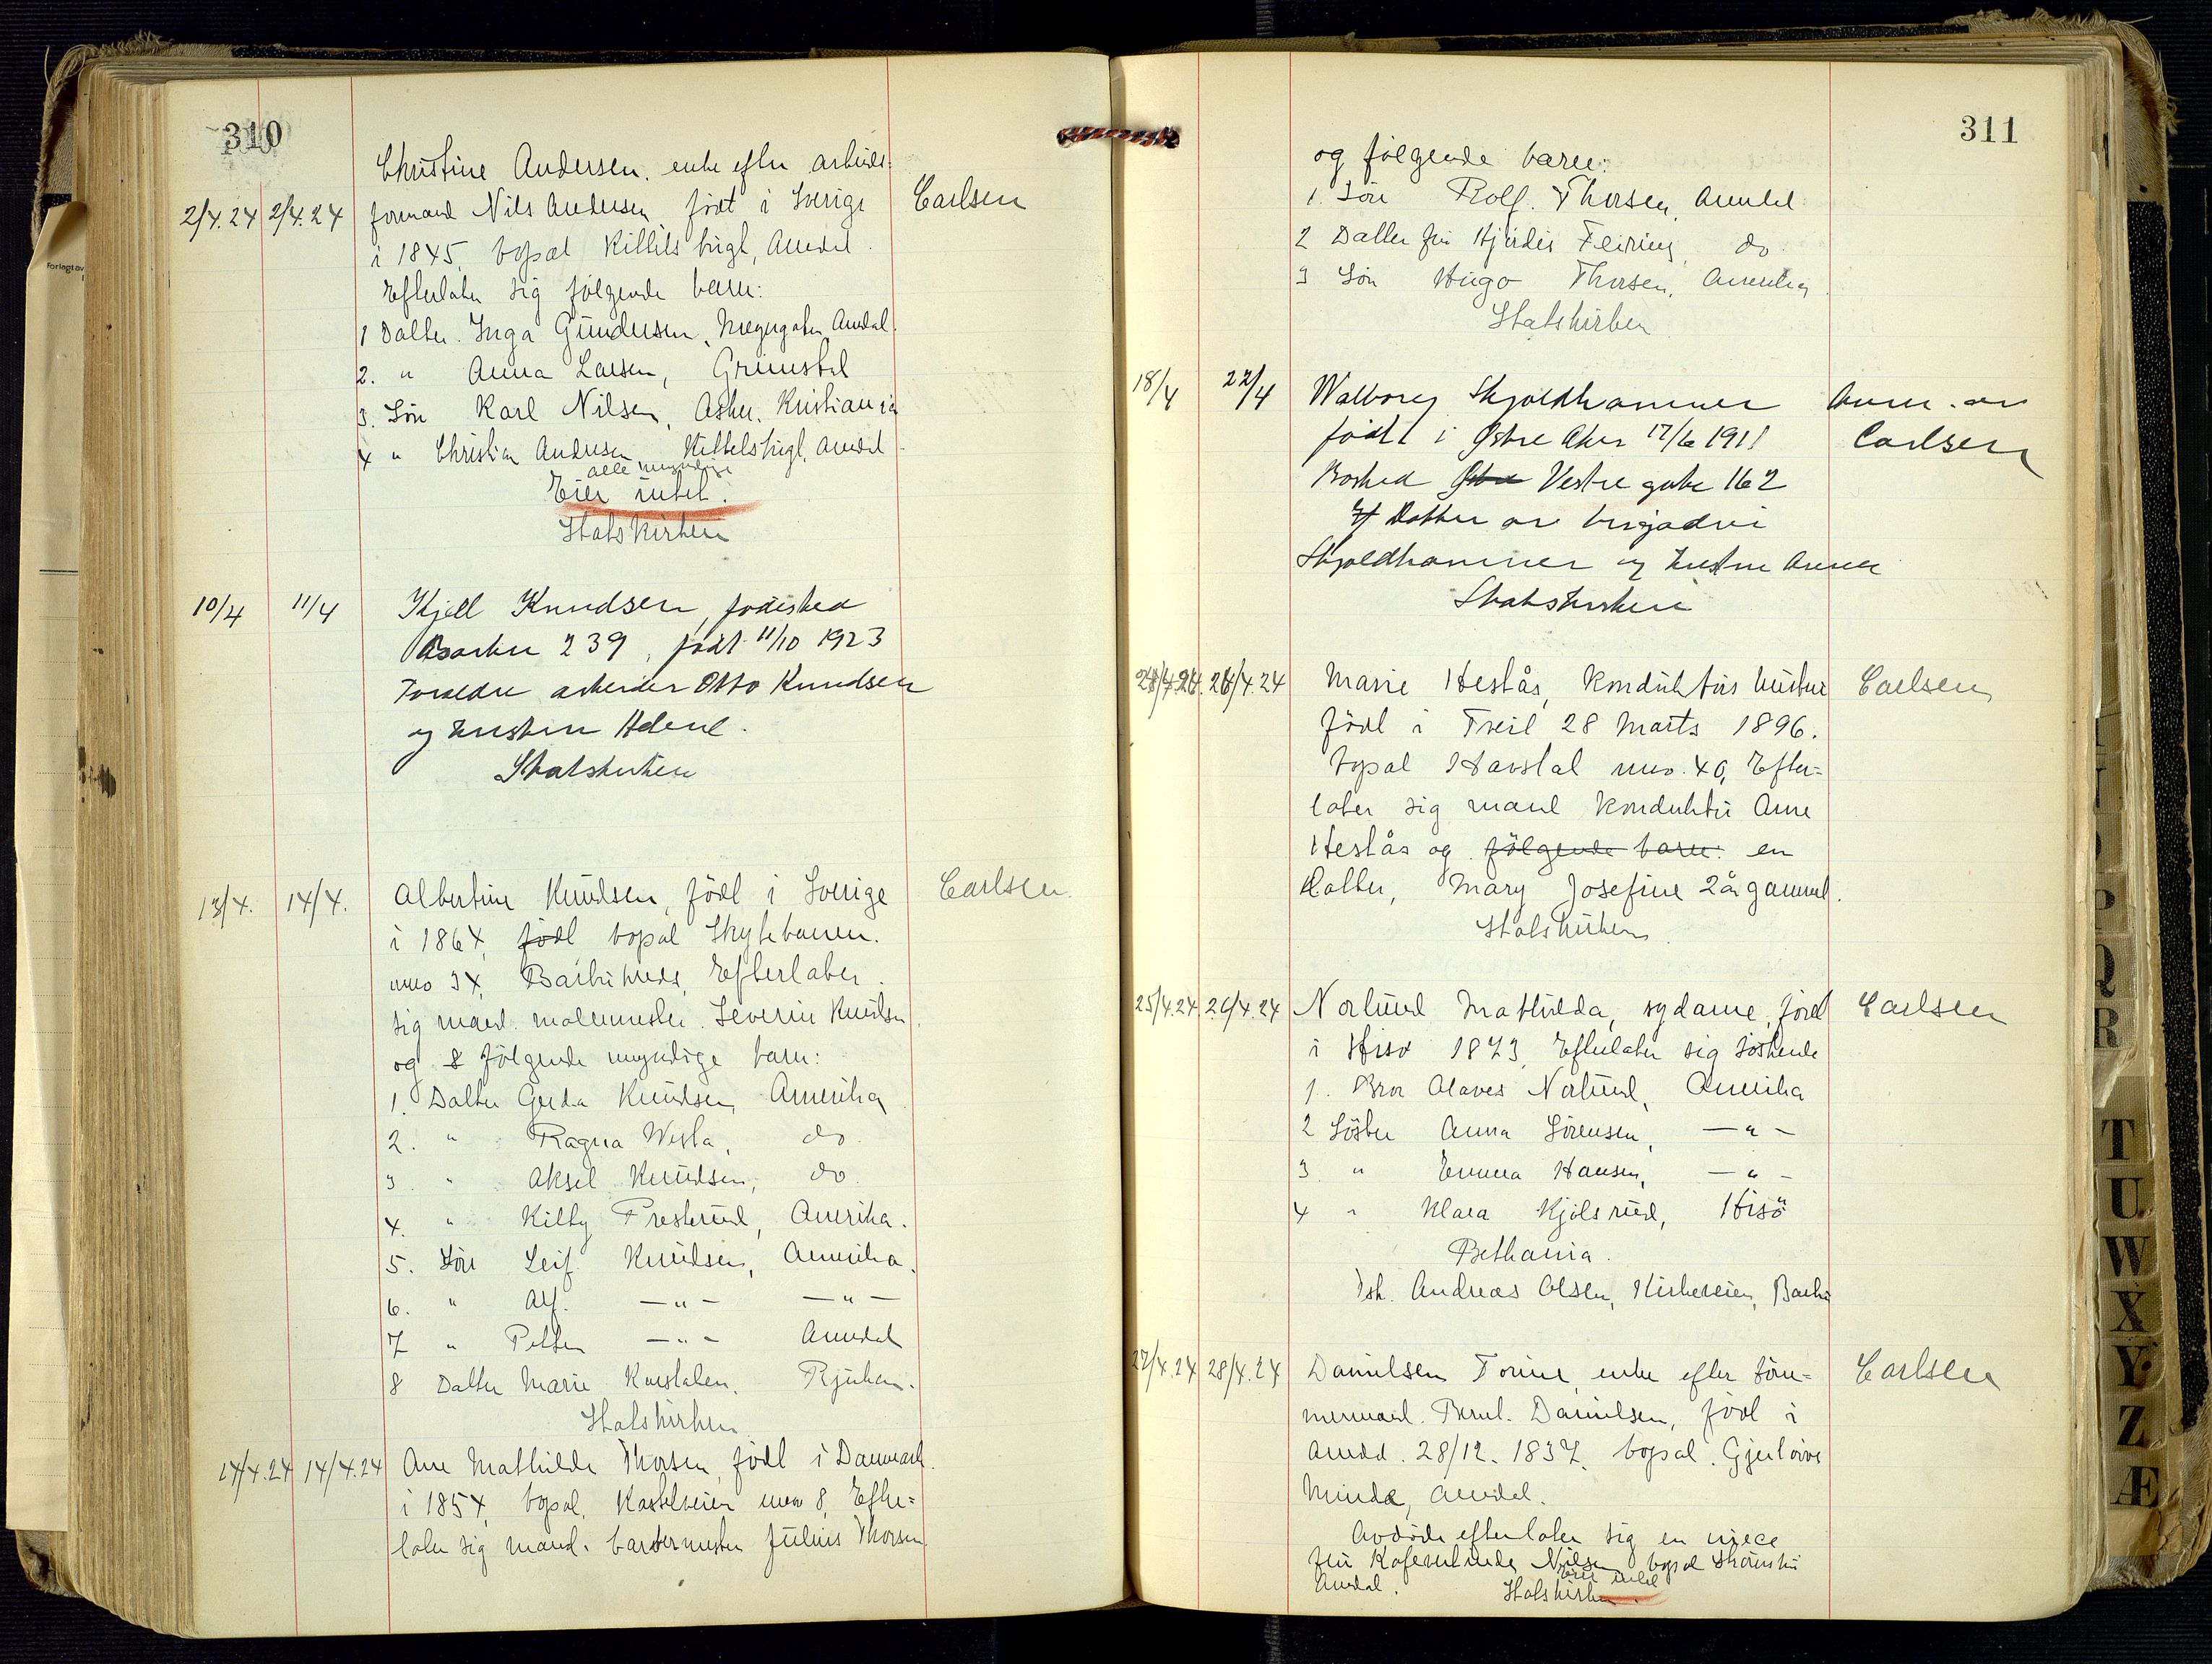 310
Christine Andersen. enke efter arbeids-
2/4.24 2/4.24 formand Nils Andersen født i Sverige Carlsen
i 1845, bopæl Kittils bugt, Arendal.
Efterlater sig følgende barn:
1 Datter. Inga Gundersen, Arendal.
2. " Anna Larsen, Grimstad
3. Søn Karl Nilsen, Asker, Kristiania
4 " Christian Andersen Kittelsbugt, Arendal
alle myndige
Eier intet.
Statskirken
10/4 11/4 Kjell Knudsen, fødested
Barbu 239, født 11/10 1923
Foreldre arbeider Otto Knudsen
og hustru Helene.
Statskirken
13/4. 14/4. Albertine Knudsen, født i Sverige Carlsen.
i 1864, født bopæl Skytebanen.
nno 34, Barbu Efterlater
sig mand. malermester. Severin Knudsen
og 8 følgende myndige barn:
1. Datter Gerda Knudsen, Amerika
2. " Ragna Westa, do
3. " Aksel Knudsen, do.
4. " Kitty Presterud, Amerika.
5. Søn Leif Knudsen, Amerika.
6. " Alf. —"— —"—
7 " Petter —"— Arendal
8 Datter Marie Rjukan.
Statskirken
14/4.24 14/4.24 Ane Mathilde Thorsen, født i Danmark.
i 1854, bopæl, Kastelveien nno 8, Efter-
later sig mand. Julius Thorsen
311
og følgende barn:
1. Søn Rolf. Thorsen, Arendal
2 Datter fru Hjørdis Feiring, do
3 Søn Hugo Thorsen, Amerika
Statskirken
18/4 22/4 Walborg Skjoldhammer Anm. av
født i Østre Aker 17/6 1911 Carlsen
Bosted Østre Vestre gate 162
Datter av brigader
Skjoldhammer og hustru Anna
Statskirken
28/4.24 28/4.24 Marie Hestås, konduktørs hustru Carlsen
født i Treil 28 Marts 1896.
bopæl Havstal nno. 40, Efter-
later sig mand konduktør Arne
Hestås og følgende barn: en
datter, Mary Josefine 2 år gammel.
Statskirken
25/4.24 26/4.24 Norlund Mathilda, sydame, født Carlsen
i Hisø 1873, Efterlater sig søskende
1. Bror Olaves Norlund, Amerika
2 Søster Anna Sørensen, —"—
3 " Emma Hansen, —"—
4 " Klara Kjølsrud, Hisö
Bethania.
Andreas Olsen, Kirkeveien, Barbu
27/4.24 28/4.24 Danielsen Tomine, enke efter tøm- Carlsen
mermand. Bernt. Danielsen, født i
Arendal. 28/12. 1837, bopæl.
Minde, Arendal.
Avdøde efterlater sig en niece
fru Nilsen, bopæl Strømsbu
Arendal. Eier intet
Statskirken.